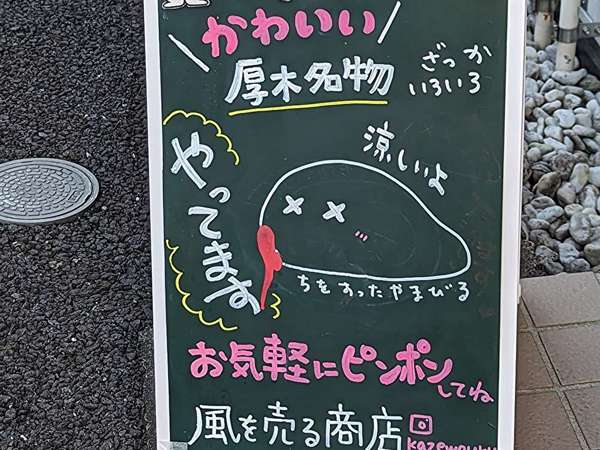 かわいい
厚木名物
ざっか
いろいろ
やってます
涼しいよ
ちをすったやまびる
お気軽にピンポン
してね
風を売る商店